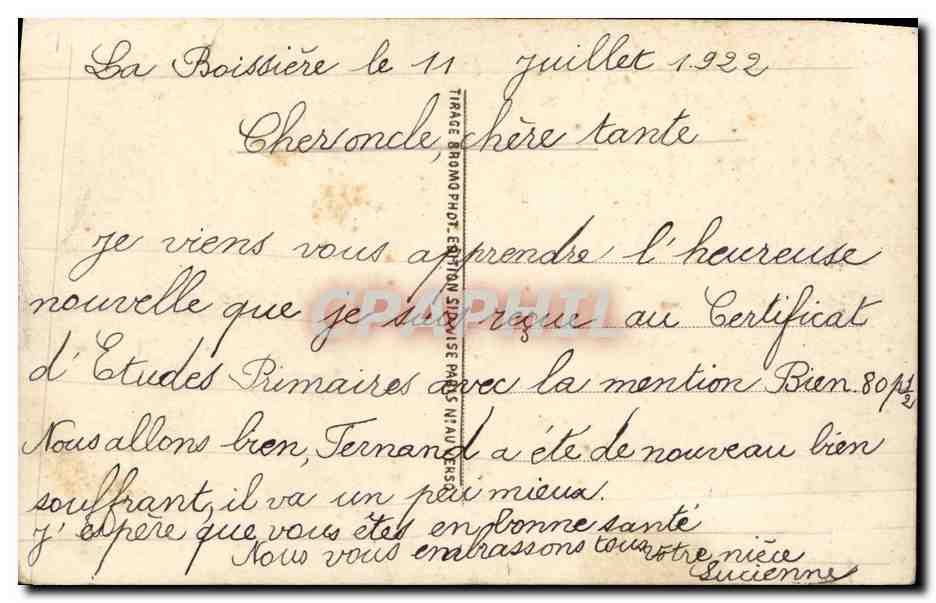 La Boissière le 11 Juillet 1922
Cher oncle, chère tante
Je viens vous apprendre l'heureuse
nouvelle que je suis reçue au Certificat
d'Etudes Primaires avec la mention Bien 80 p 1/2
Nous allons bien, Fernand a été de nouveau bien
souffrant, il va un peu mieux.
J'éspère que vous êtes en bonne santé
Nous vous embrassons tous votre nièce
Lucienne
TIRAGE BROMOPHOT. EDITION SID. VISE PARIS Nº AU VERSO
GRAPHIL